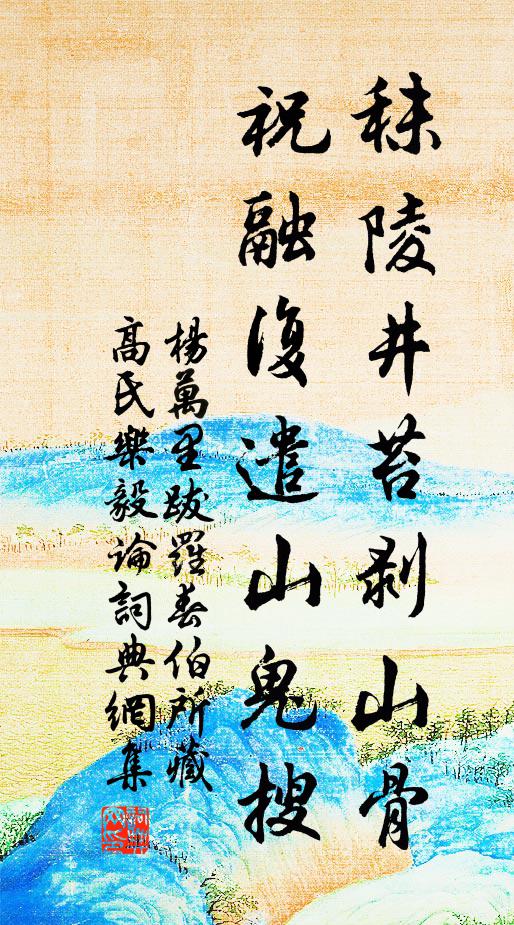 秣陵井苔剥山骨
祝融復遣山鬼搜
楊萬里跋羅春伯所藏
高氏樂毅論詞典網集